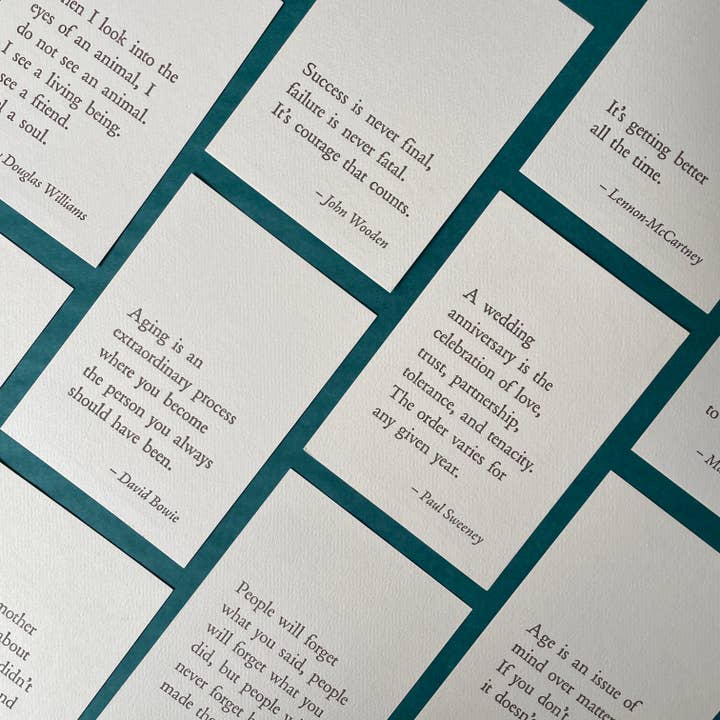 when I look into the
eyes of an animal, I
do not see an animal.
I see a living being.
see a friend.
a soul.
Douglas Williams
Success is never final,
failure is never fatal.
It's courage that counts.
– John Wooden
It's getting better
all the time.
– Lennon-McCartney
Aging is an
extraordinary process
where you become
the person you always
should have been.
– David Bowie
A wedding
anniversary is the
celebration of love,
trust, partnership,
tolerance, and tenacity.
The order varies for
any given year.
– Paul Sweeney
to
People will forget
what you said, people
will forget what you
did, but people
never forget
made
Age is an issue of
mind over matter
If you don't
it doesn't
about
didn't